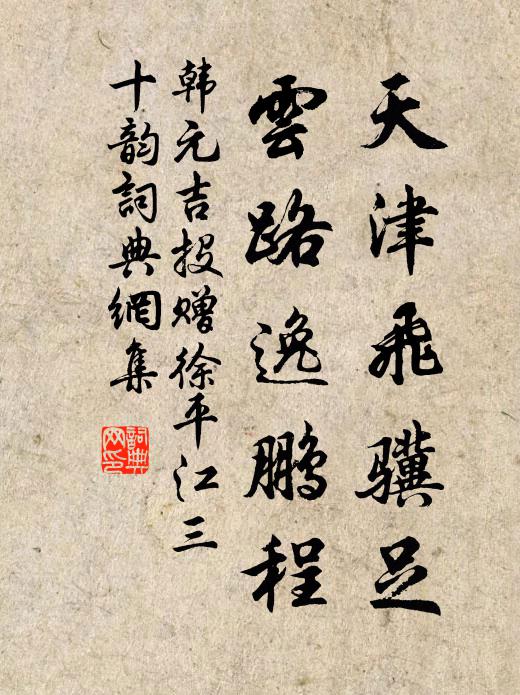 天津飛驥足
雲路逸鵬程
韩元吉投赠徐平江三
十韵詞典網集
詞典網印